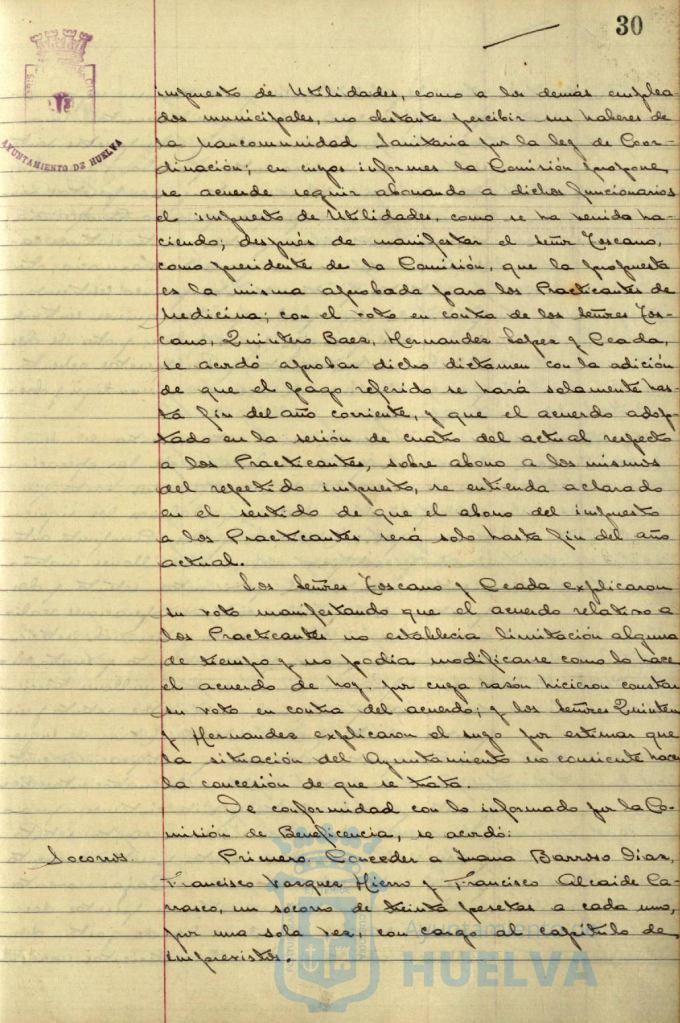 30
AYUNTAMIENTO DE HUELVA
impuesto de Utilidades, como a los demás emplea-
dos municipales, no obstante percibir sus haberes de
la Mancomunidad Sanitaria por la ley de Coor-
dinación; en cuyos informes la Comisión propone
se acuerde seguir abonando a dichos funcionarios
el impuesto de Utilidades, como se ha venido ha-
ciendo; después de manifestar el señor Toscano,
como presidente de la Comisión, que la propuesta
es la misma aprobada para los Practicantes de
Medicina; con el voto en contra de los señores Tos-
cano, Quintero Baez, Hernandez Lopez y Ceada,
se acordó aprobar dicho dictamen con la adición
de que el pago referido se hará solamente has-
ta fin del año corriente, y que el acuerdo adop-
tado en la sesión de cuatro del actual respecto
a los Practicantes, sobre abono a los mismos
del repetido impuesto, se entienda aclarado
en el sentido de que el abono del impuesto
a los Practicantes será solo hasta fin del año
actual.
Los señores Toscano y Ceada explicaron
su voto manifestando que el acuerdo relativo a
los Practicantes no establecia limitación alguna
de tiempo y no podia modificarse como lo hace
el acuerdo de hoy, por cuya razón hicieron constar
su voto en contra del acuerdo; y los señores Quintero
y Hernandez explicaron el suyo por estimar que
la situación del Ayuntamiento no consiente hacer
la concesión de que se trata.
De conformidad con lo informado por la Co-
misión de Beneficencia, se acordó:
Socorros. Primero. Conceder a Juana Barroso Diaz,
Francisco Vazquez Hierro y Francisco Alcaide Ca-
rrasco, un socorro de treinta pesetas a cada uno,
por una sola vez, con cargo al capítulo de
imprevistos.
Ayuntamiento de
HUELVA